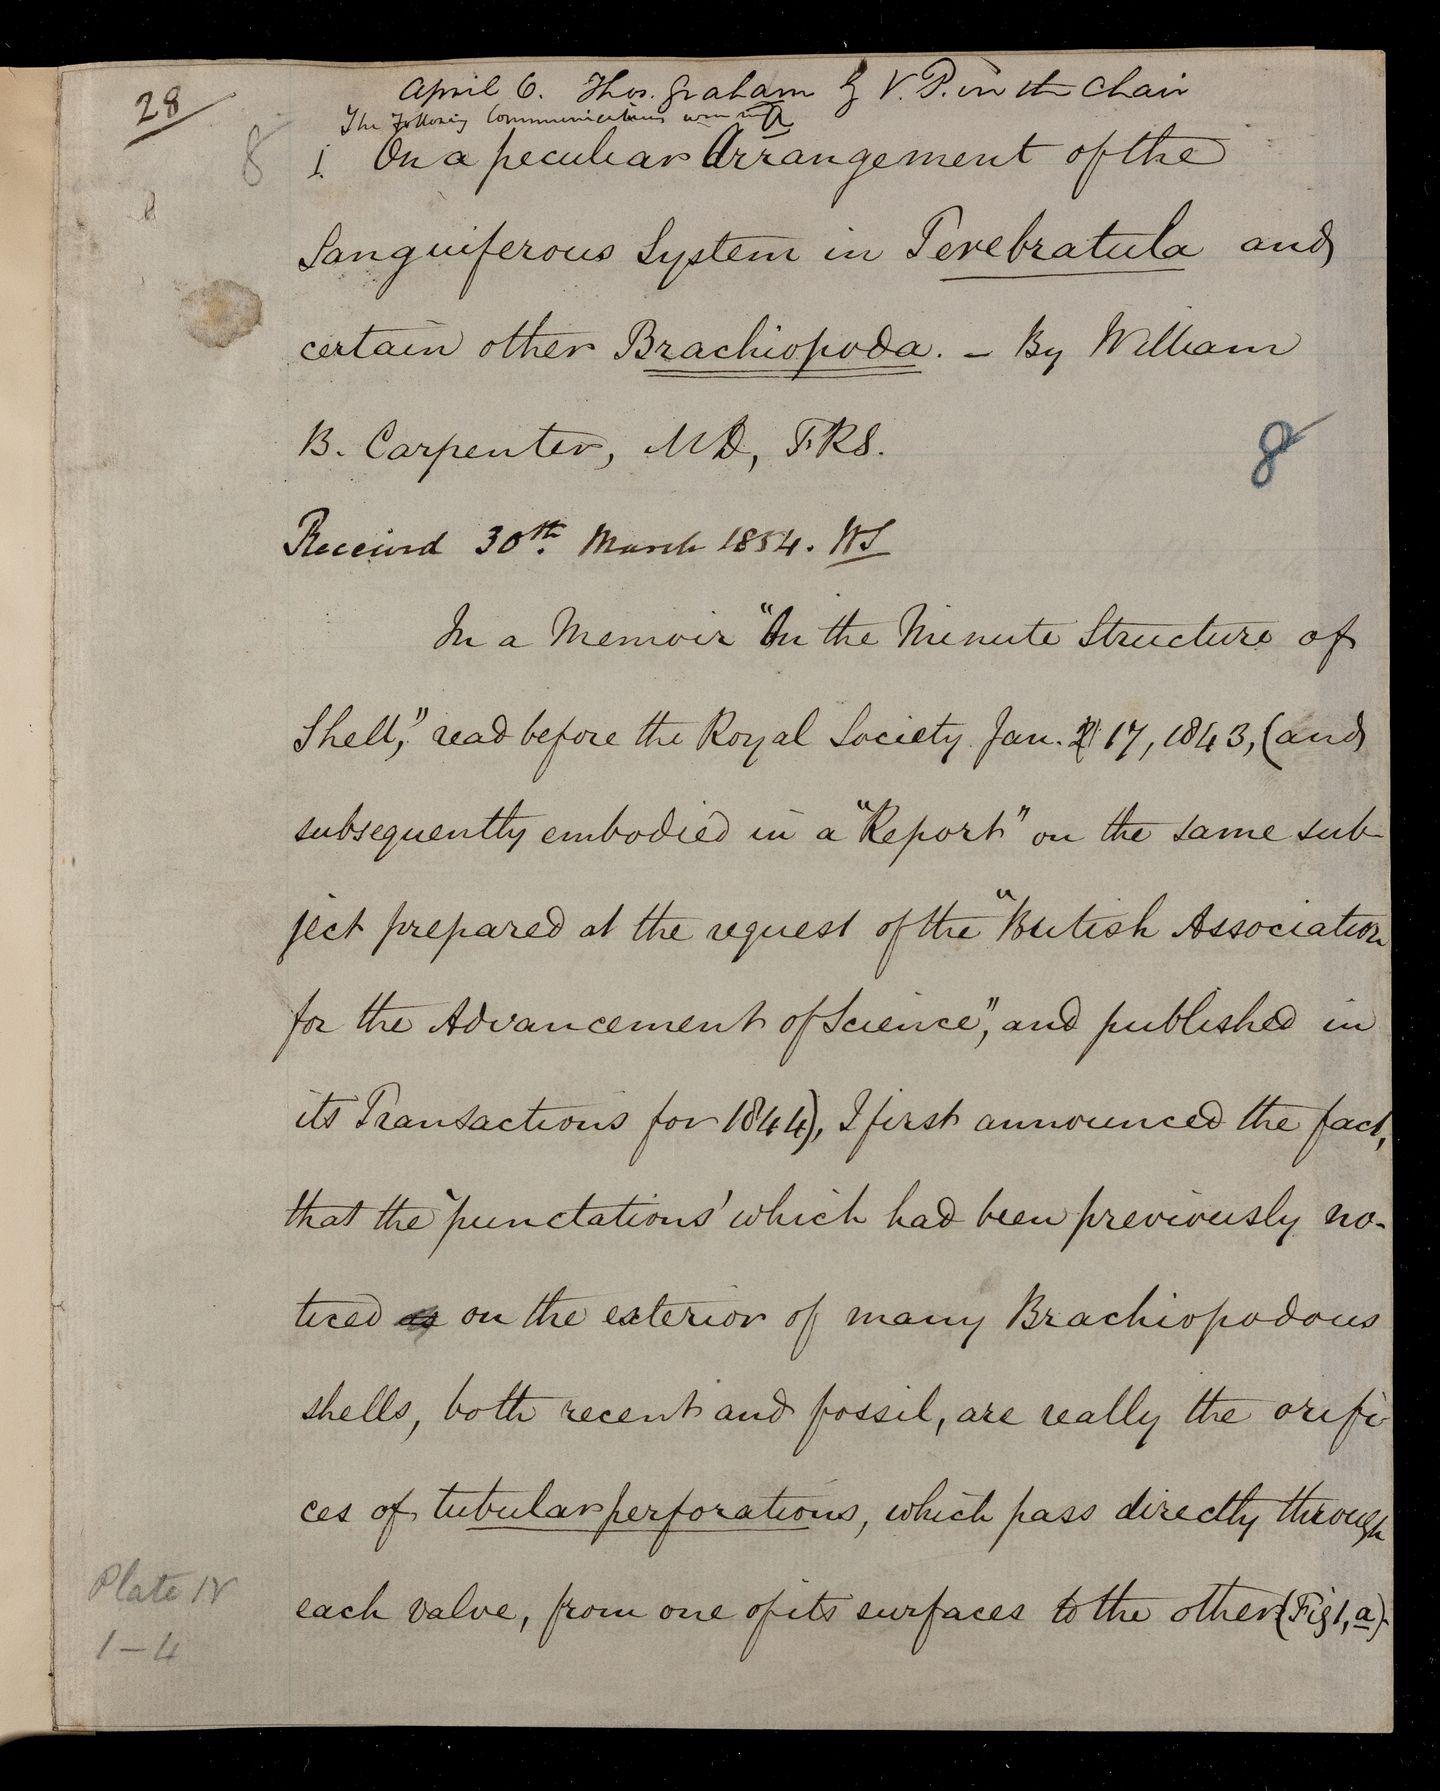 28
April 6. Thos. Graham Esq V.P. in the Chair
The following Communications were read
8
1. On a peculiar Arrangement of the
Sanguiferous System in Terebratula and
certain other Brachiopoda. – By William
B. Carpenter, MD, F.R.S.
8
Received 30th. March 1854. WS
In a Memoir "On the Minute Structure of
Shell," read before the Royal Society Jan. 17, 1843, (and
subsequently embodied in a "Report" on the same sub-
ject prepared at the request of the "British Association
for the Advancement of Science", and published in
its Transactions for 1844), I first announced the fact,
that the 'punctations' which had been previously no-
ticed on the exterior of many Brachiopodous
shells, both recent and fossil, are really the orifi-
ces of tubular perforations, which pass directly through
each valve, from one of its surfaces to the other (Fig 1, a).
Plate IV
1–4